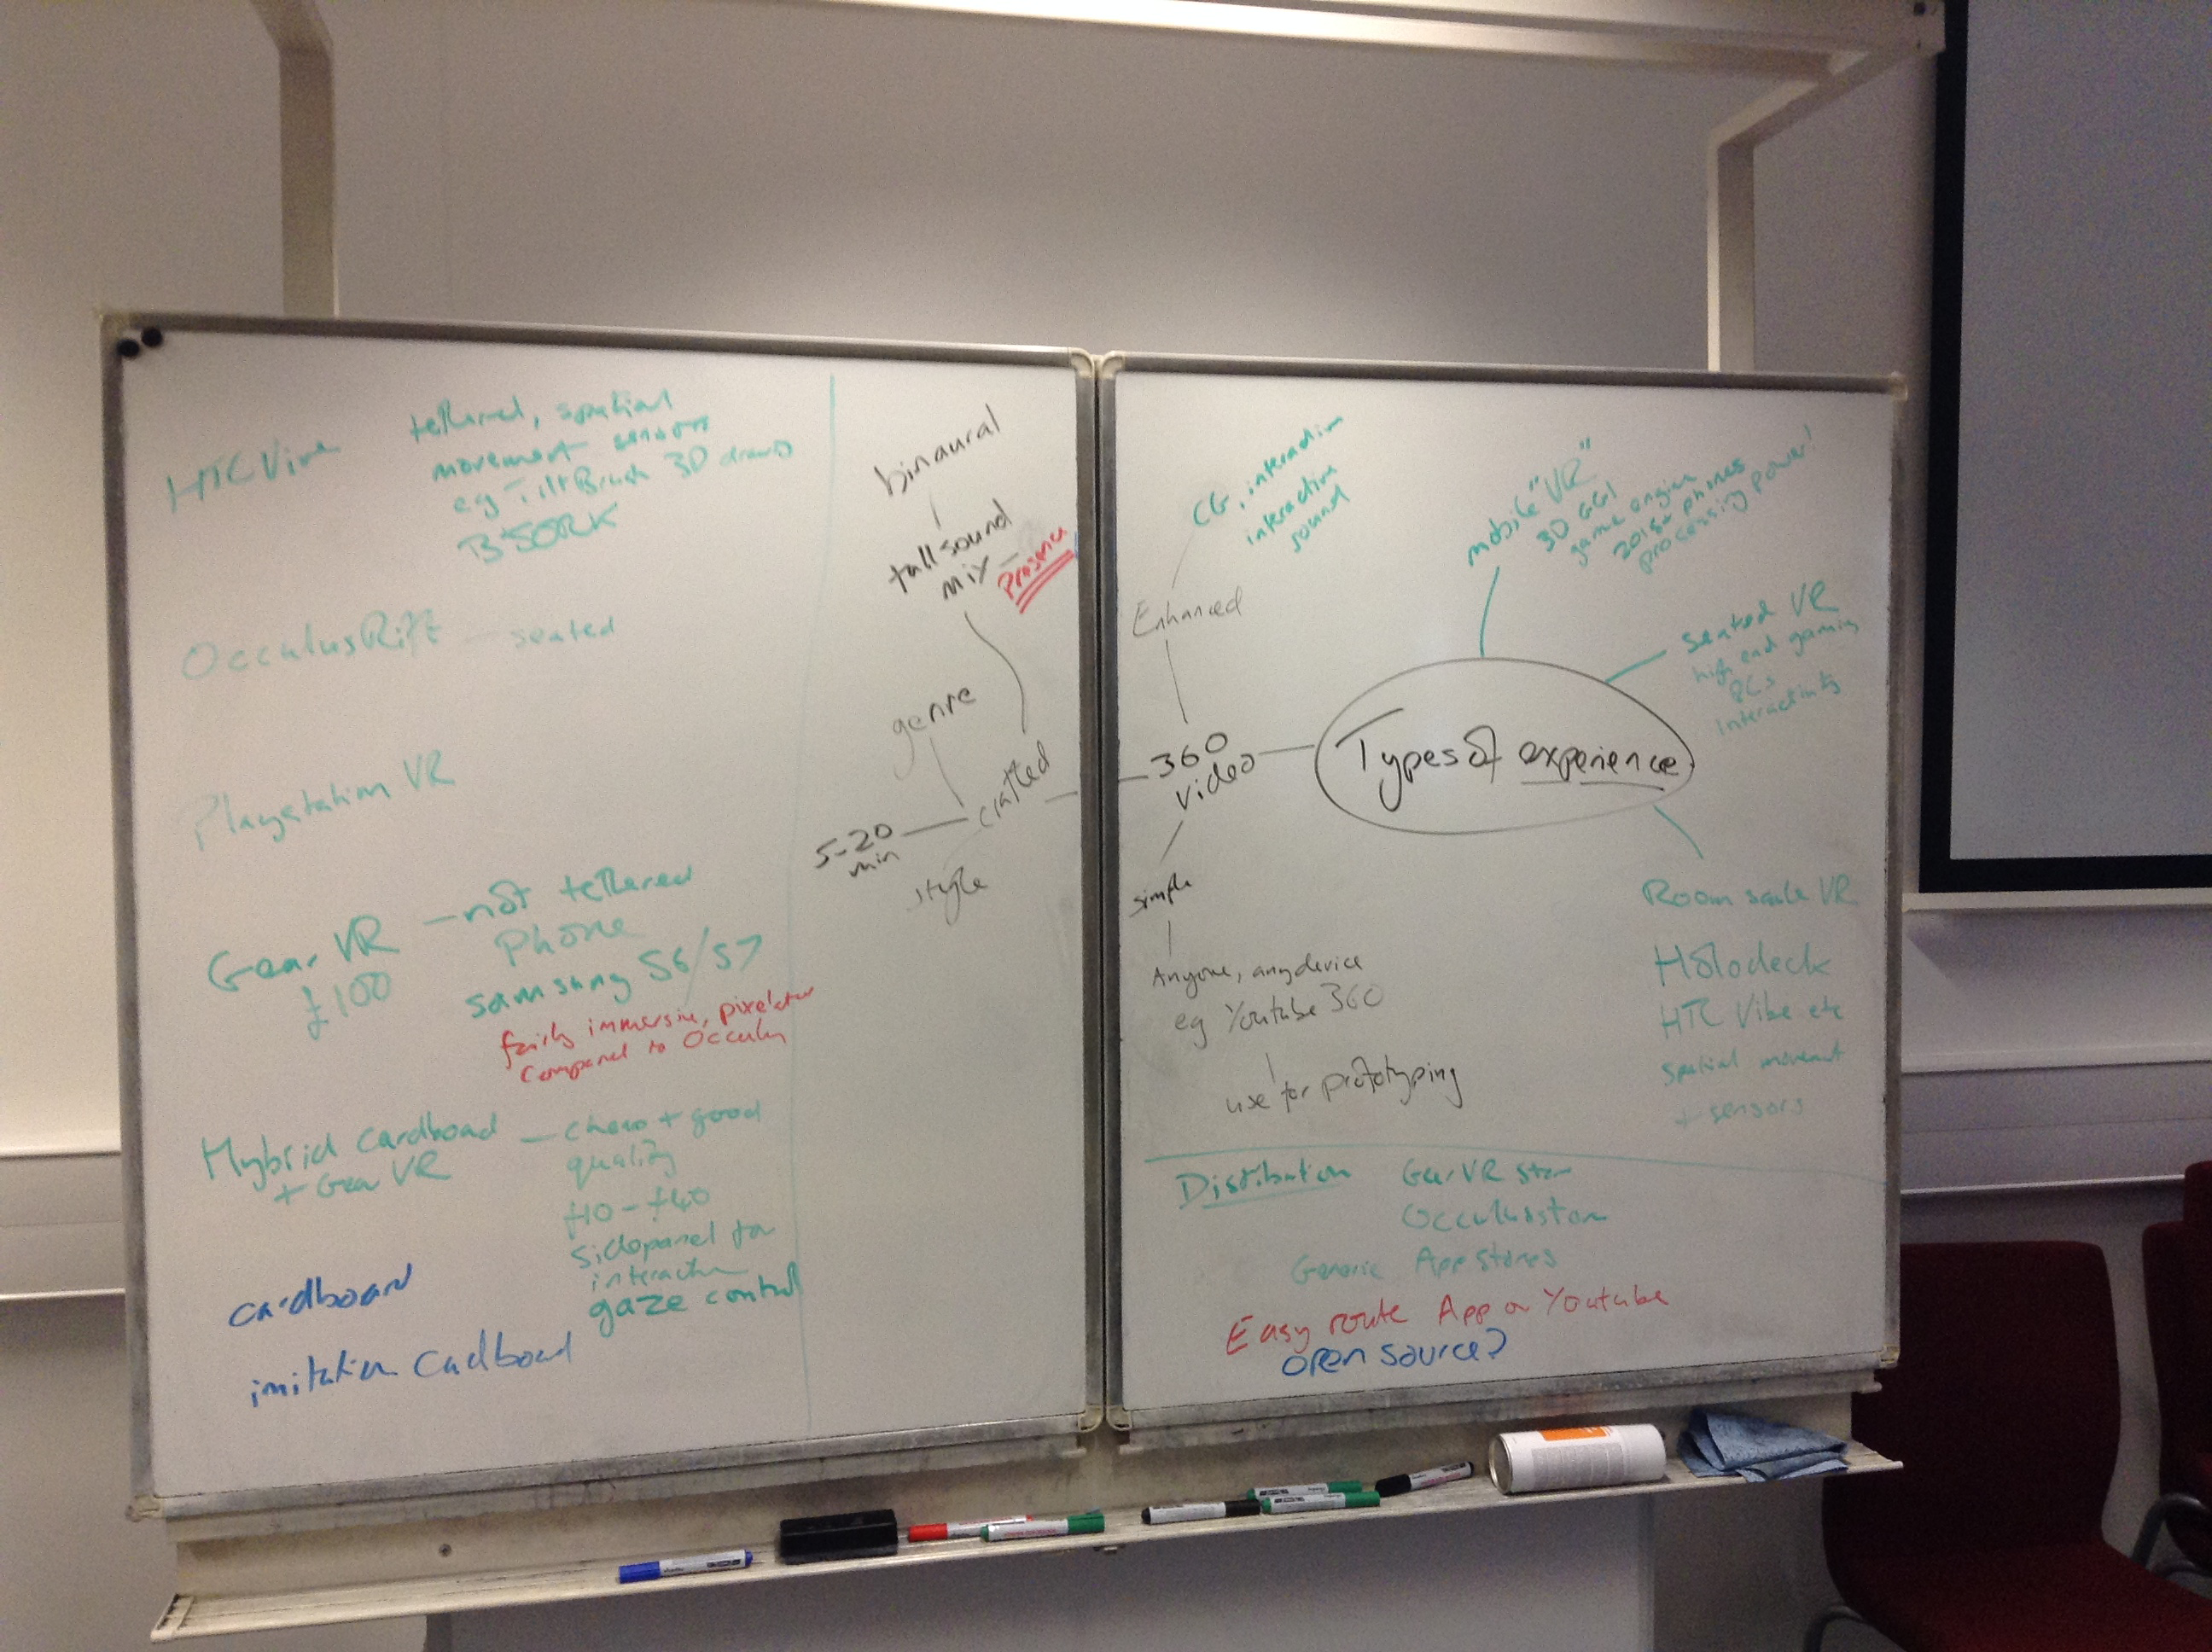 HTC Vive
tethered, spatial
movement sensors
eg TiltBrush 3D drawing
BJORK
OcculusRift — seated
Playstation VR
Gear VR
£100
— not tethered
phone
Samsung S6/S7
fairly immersive, pixelated
compared to Occulus
Hybrid cardboard
+ Gear VR
— cheap + good
quality
£10 - £40
sidepanel for
interaction
gaze control
cardboard
imitation Cardboard
binaural
full sound
mix — presence
genre
crafted
5-20
min
style
CG, interaction
interactive
sound
Enhanced
360
video
simple
Anyone, any device
eg Youtube 360
use for prototyping
Types of experience
mobile "VR"
3D CGI
game engine
2015+ phones
processing power!
Seated VR
high end gaming
PCs
Interactivity
Room scale VR
Holodeck
HTC Vibe etc
spatial movement
+ sensors
Distibution
GearVR store
Occulus store
Generic App Stores
Easy route App or Youtube
open source?